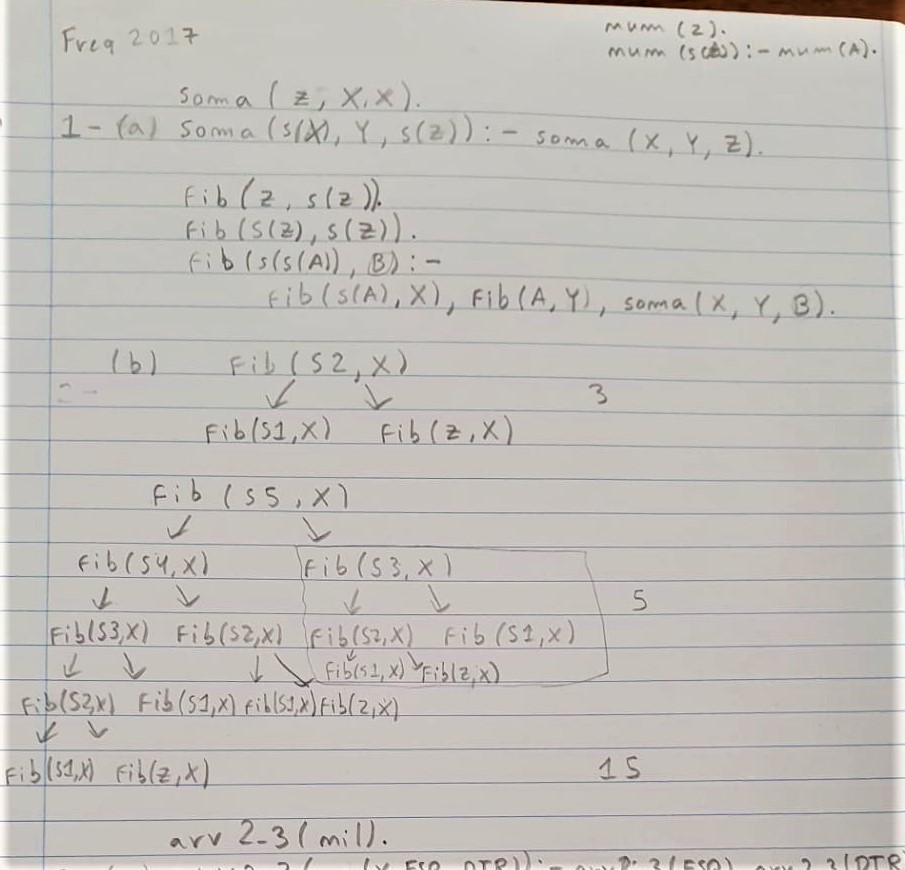 Freq 2017
num (z).
num (s(A)) :- num (A).
soma ( z, X, X).
1 - (a) soma (s(X), Y, s(z)) :- soma (X, Y, Z).
Fib (z, s(z)).
Fib (s(z), s(z)).
Fib (s(s(A)), B) :-
Fib (s(A), X), Fib(A, Y), soma(X, Y, B).
(b) Fib (S2, X)
3
Fib(S1,X) Fib(z,X)
Fib (S5, X)
Fib(S4,X) Fib(S3,X)
5
Fib(S3,X) Fib(S2,X) Fib(S2,X) Fib(S1,X)
Fib(S1,X) Fib(z,X)
Fib(S2,X) Fib(S1,X) Fib(S1,X) Fib(z,X)
Fib(S1,X) Fib(z,X)
15
arv 2-3 (nil).
ESQ, DTR)) :- (ESQ), (DTR